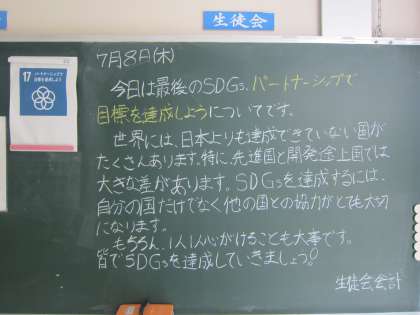 生徒会
17 パートナーシップで
目標を達成しよう
7月8日(木)
今日は最後のSDGs、パートナーシップで
目標を達成しようについてです。
世界には、日本よりも達成できていない国が
たくさんあります。特に、先進国と開発途上国では
大きな差があります。SDGsを達成するには、
自分の国だけでなく他の国との協力がとても大切
になります。
もちろん、1人1人心がけることも大事です。
皆でSDGsを達成していきましょう!
生徒会会計